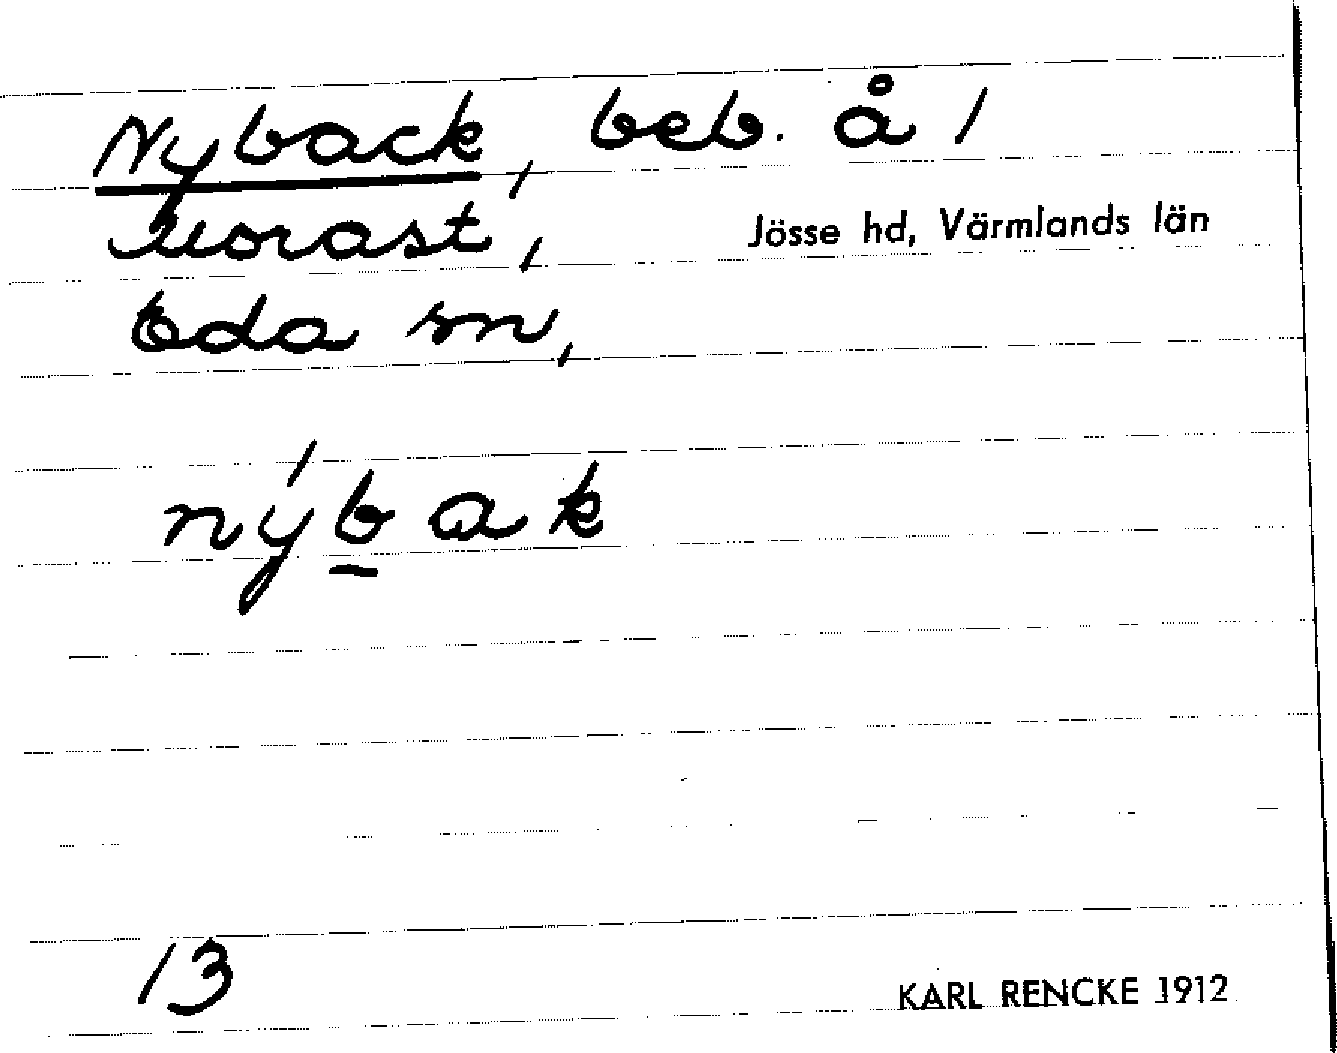 Nyback, beb. å 1
Morast, Jösse hd, Värmlands län
Eda sn,
nýbak
13
KARL RENCKE 1912